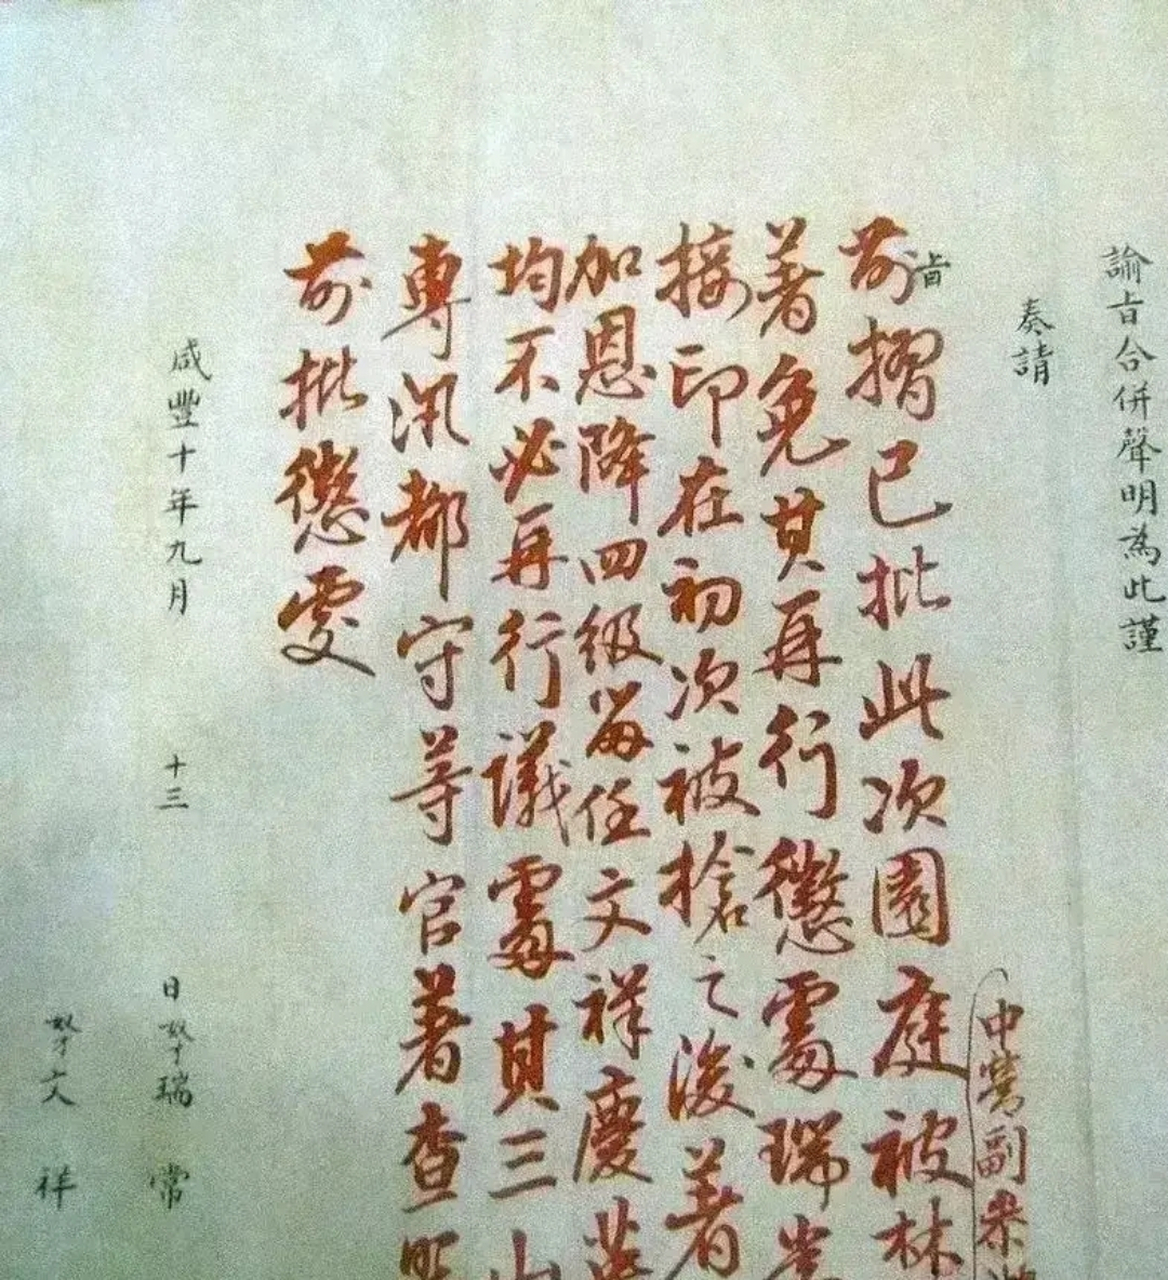 諭旨合併聲明為此謹
奏請
旨
中營副叅
前摺已批此次園庭被林
著免其再行懲處瑞常
接印在初次被搶之後著
加恩降四級留任文祥慶英
均不必再行議處其三山
專汛都守等官著查照
前批懲處
咸豐十年九月 十三 日奴才瑞 常
奴才文 祥